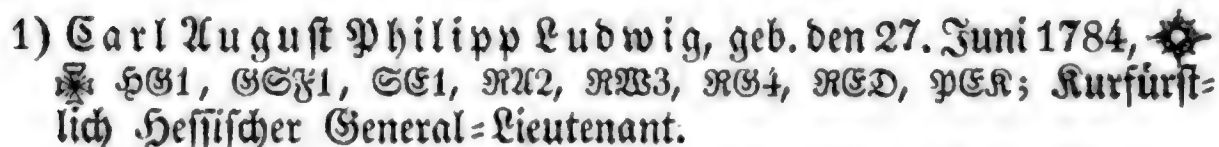 1) Carl August Philipp Ludwig, geb. den 27. Juni 1784,
HG1, GSF1, SE1, RA2, RW3, RG4, RED, PEK; Kurfürst-
lich Hessischer General-Lieutenant.